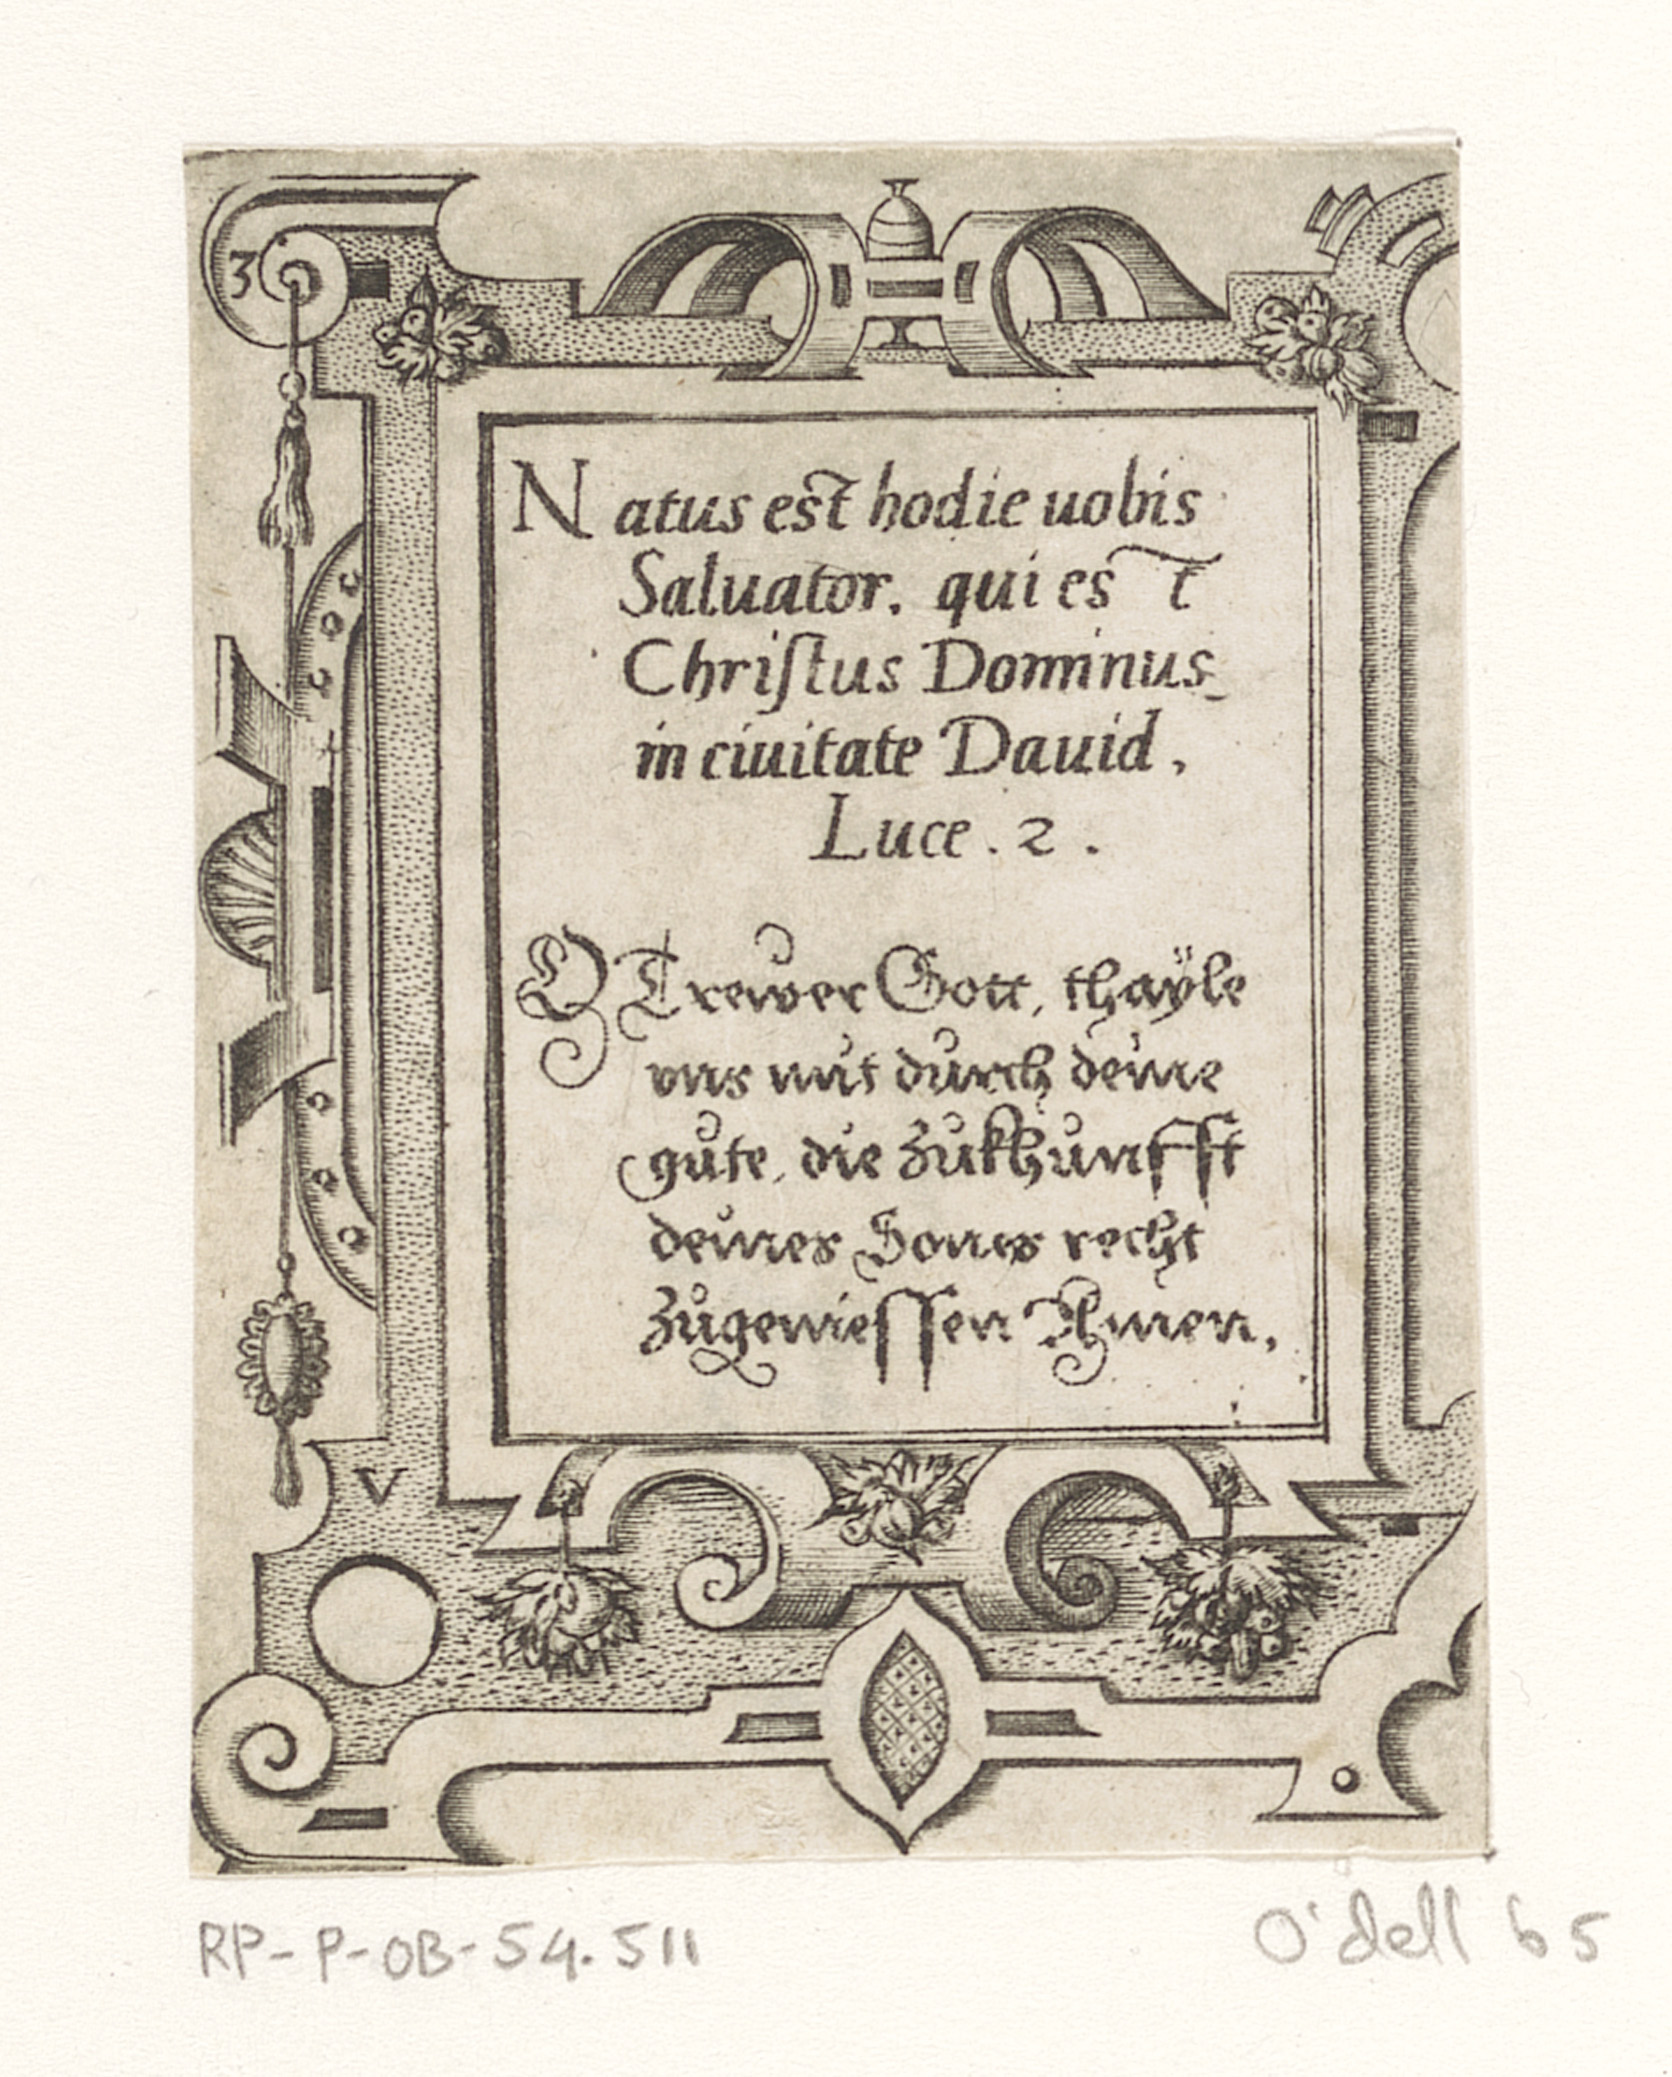 3
Natus est hodie uobis
Saluator. qui est
Chriſtus Dominus
in ciuitate Dauid,
Luce . 2 .
O Trewer Gott, thaÿle
vns mit durch deine
gůte, die Zůkhůnfft
deines Sons recht
Zůgenieſſen Amen,
V
RP-P-OB-54.511
O'dell 65